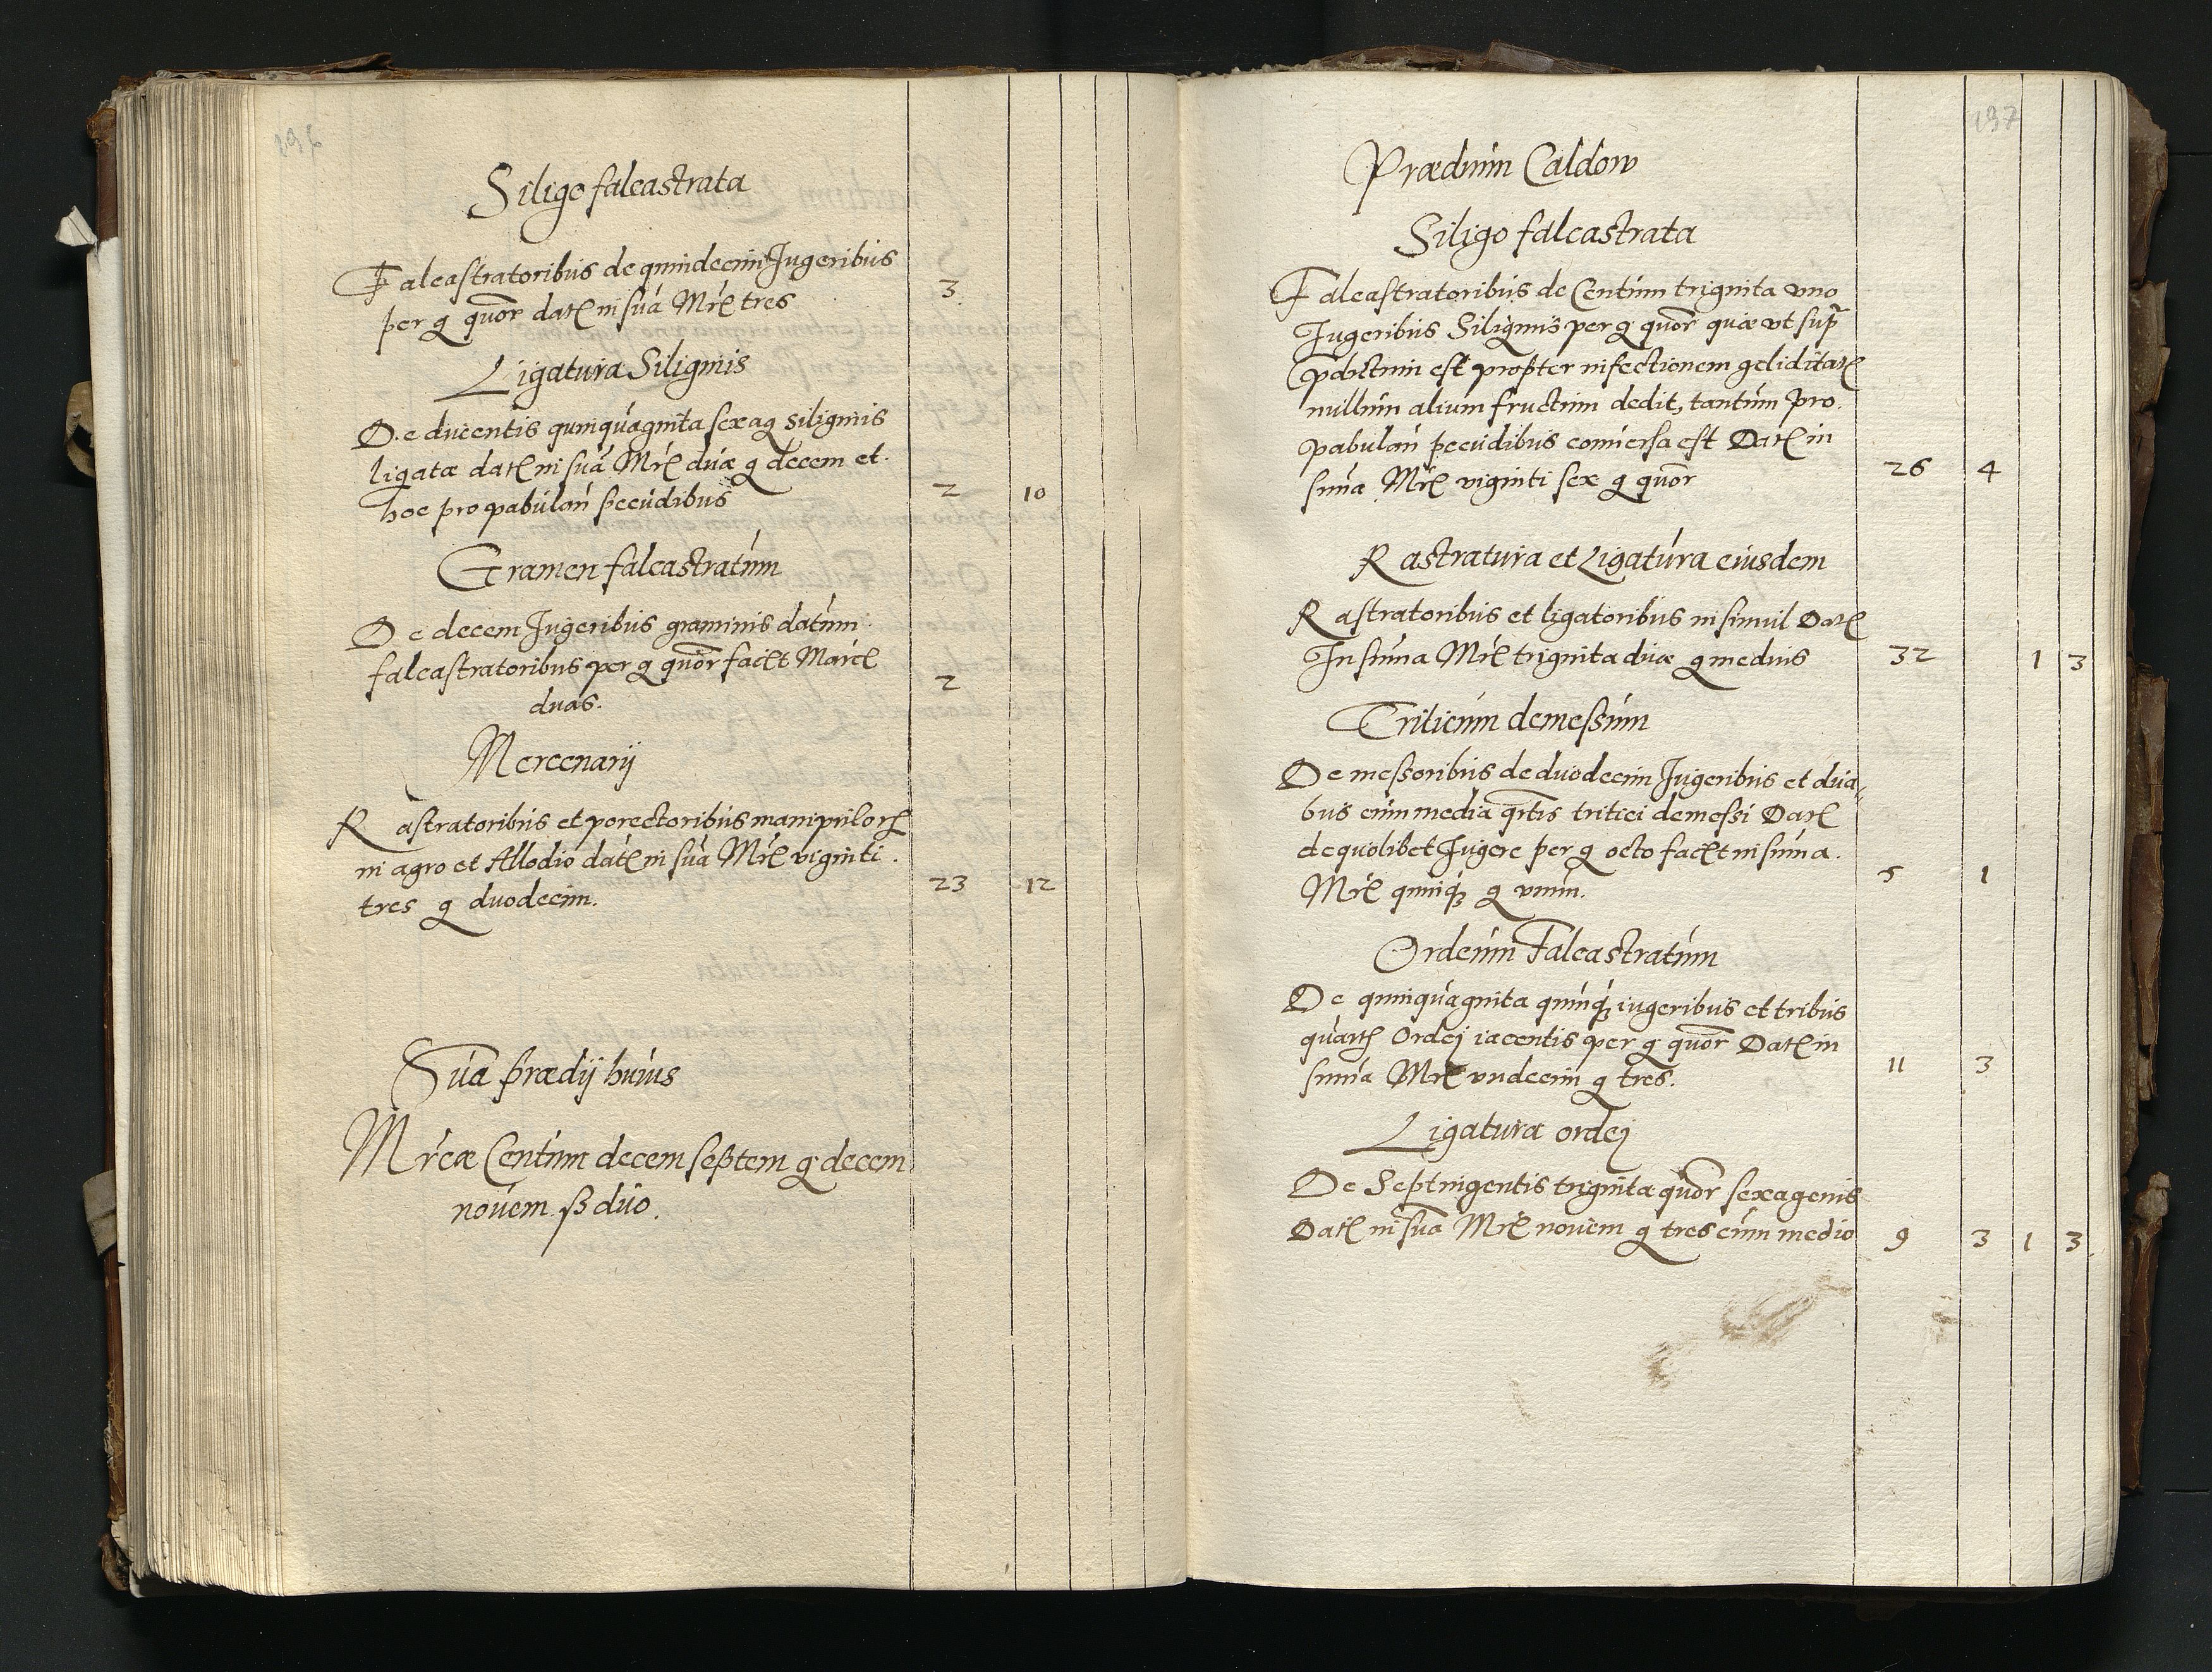 196
Siligo falcastrata
Falcastratoribus de quindecim Jugeribus
per g quor datę in sua Mrę tres 3
Ligatura Siliginis
De ducentis quinquaginta sexag siliginis
ligatæ datę in sua Mrę duæ g decem et
hoc pro pabulaň pecudibus 2 10
Gramen falcastratum
De decem Jugeribus graminis datum
falcastratoribus per g quor facĩt Marcę
duas. 2
Mercenarij
Rastratoribus et porectoribus manipulorꝭ
in agro et Allodio datę in sua Mrę viginti
tres g duodecim. 23 12
Sua prædij huius
Mrcæ Centum decem septem g decem
novem ß duo.
197
Prædium Caldow
Siligo falcastrata
Falcastratoribus de Centum triginta vno
Jugeribus Siliginis per g quor quæ vt sup
pdictum est propter infectionem geliditatę
nullum alium fructum dedit, tantum pro
pabulaň pecudibus conversa est Datę in
suma Mrę viginti sex g quor 26 4
Rastratura et Ligatura eiusdem
Rastratoribus et ligatoribus insimul Datę
In suma Mrę triginta duæ g medius 32 1 3
Triticum demeßum
De meßoribus de duodecim Jugeribus et dua-
bus cum media qrtis tritici demeßi Datę
de quolibet Jugere per g octo facĩt in suma
Mrę quinqꝫ g vnum. 5 1
Ordeum Falcastratum
De quinquaginta quinqꝫ iugeribus et tribus
quartꝭ Ordej iacentis per g quor Datę in
suma Mrę vndecim g tres. 11 3
Ligatura ordej
De Septingentis triginta quor sexagenis
Datę in sua Mrę novem g tres cum medio 9 3 1 3